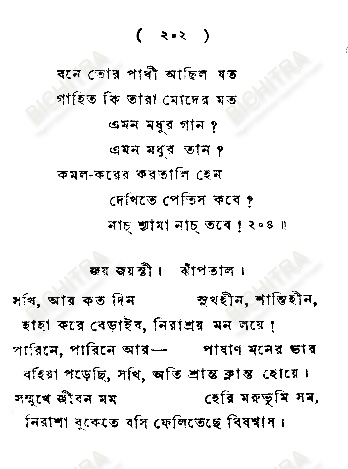 ( ২০২ )
বনে তোর পাখী আছিল যত
গাহিত কি তারা মোদের মত
এমন মধুর গান ?
এমন মধুর তান ?
কমল-করের করতালি হেন
দেখিতে পেতিস কবে ?
নাচ্ শ্যামা নাচ্ তবে ! ২০৪ ॥
জয় জয়ন্তী । ঝাঁপতাল ।
সখি, আর কত দিন সুখহীন, শান্তিহীন,
হাহা করে বেড়াইব, নিরাশ্রয় মন লয়ে !
পারিনে, পারিনে আর— পাষাণ মনের ভার
বহিয়া পড়েছি, সখি, অতি শ্রান্ত ক্লান্ত হোয়ে ।
সম্মুখে জীবন মম হেরি মরুভূমি সম,
নিরাশা বুকেতে বসি ফেলিতেছে বিষশ্বাস ।
BICHITRA